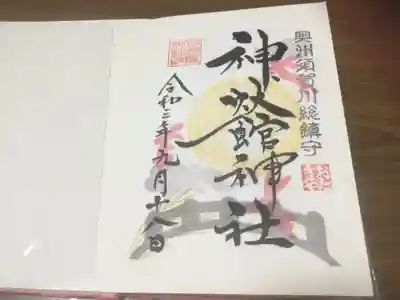 奥州須賀川総鎮守
神炊館神社
令和二年九月十八日